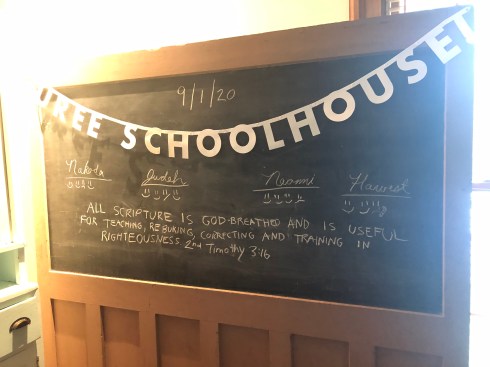 9/1/20
UREE SCHOOLHOUSE
Nakoda Judah Naomi Harvest
ALL SCRIPTURE IS GOD-BREATHED AND IS USEFUL
FOR TEACHING, REBUKING, CORRECTING AND TRAINING IN
RIGHTEOUSNESS 2nd Timothy 3:16